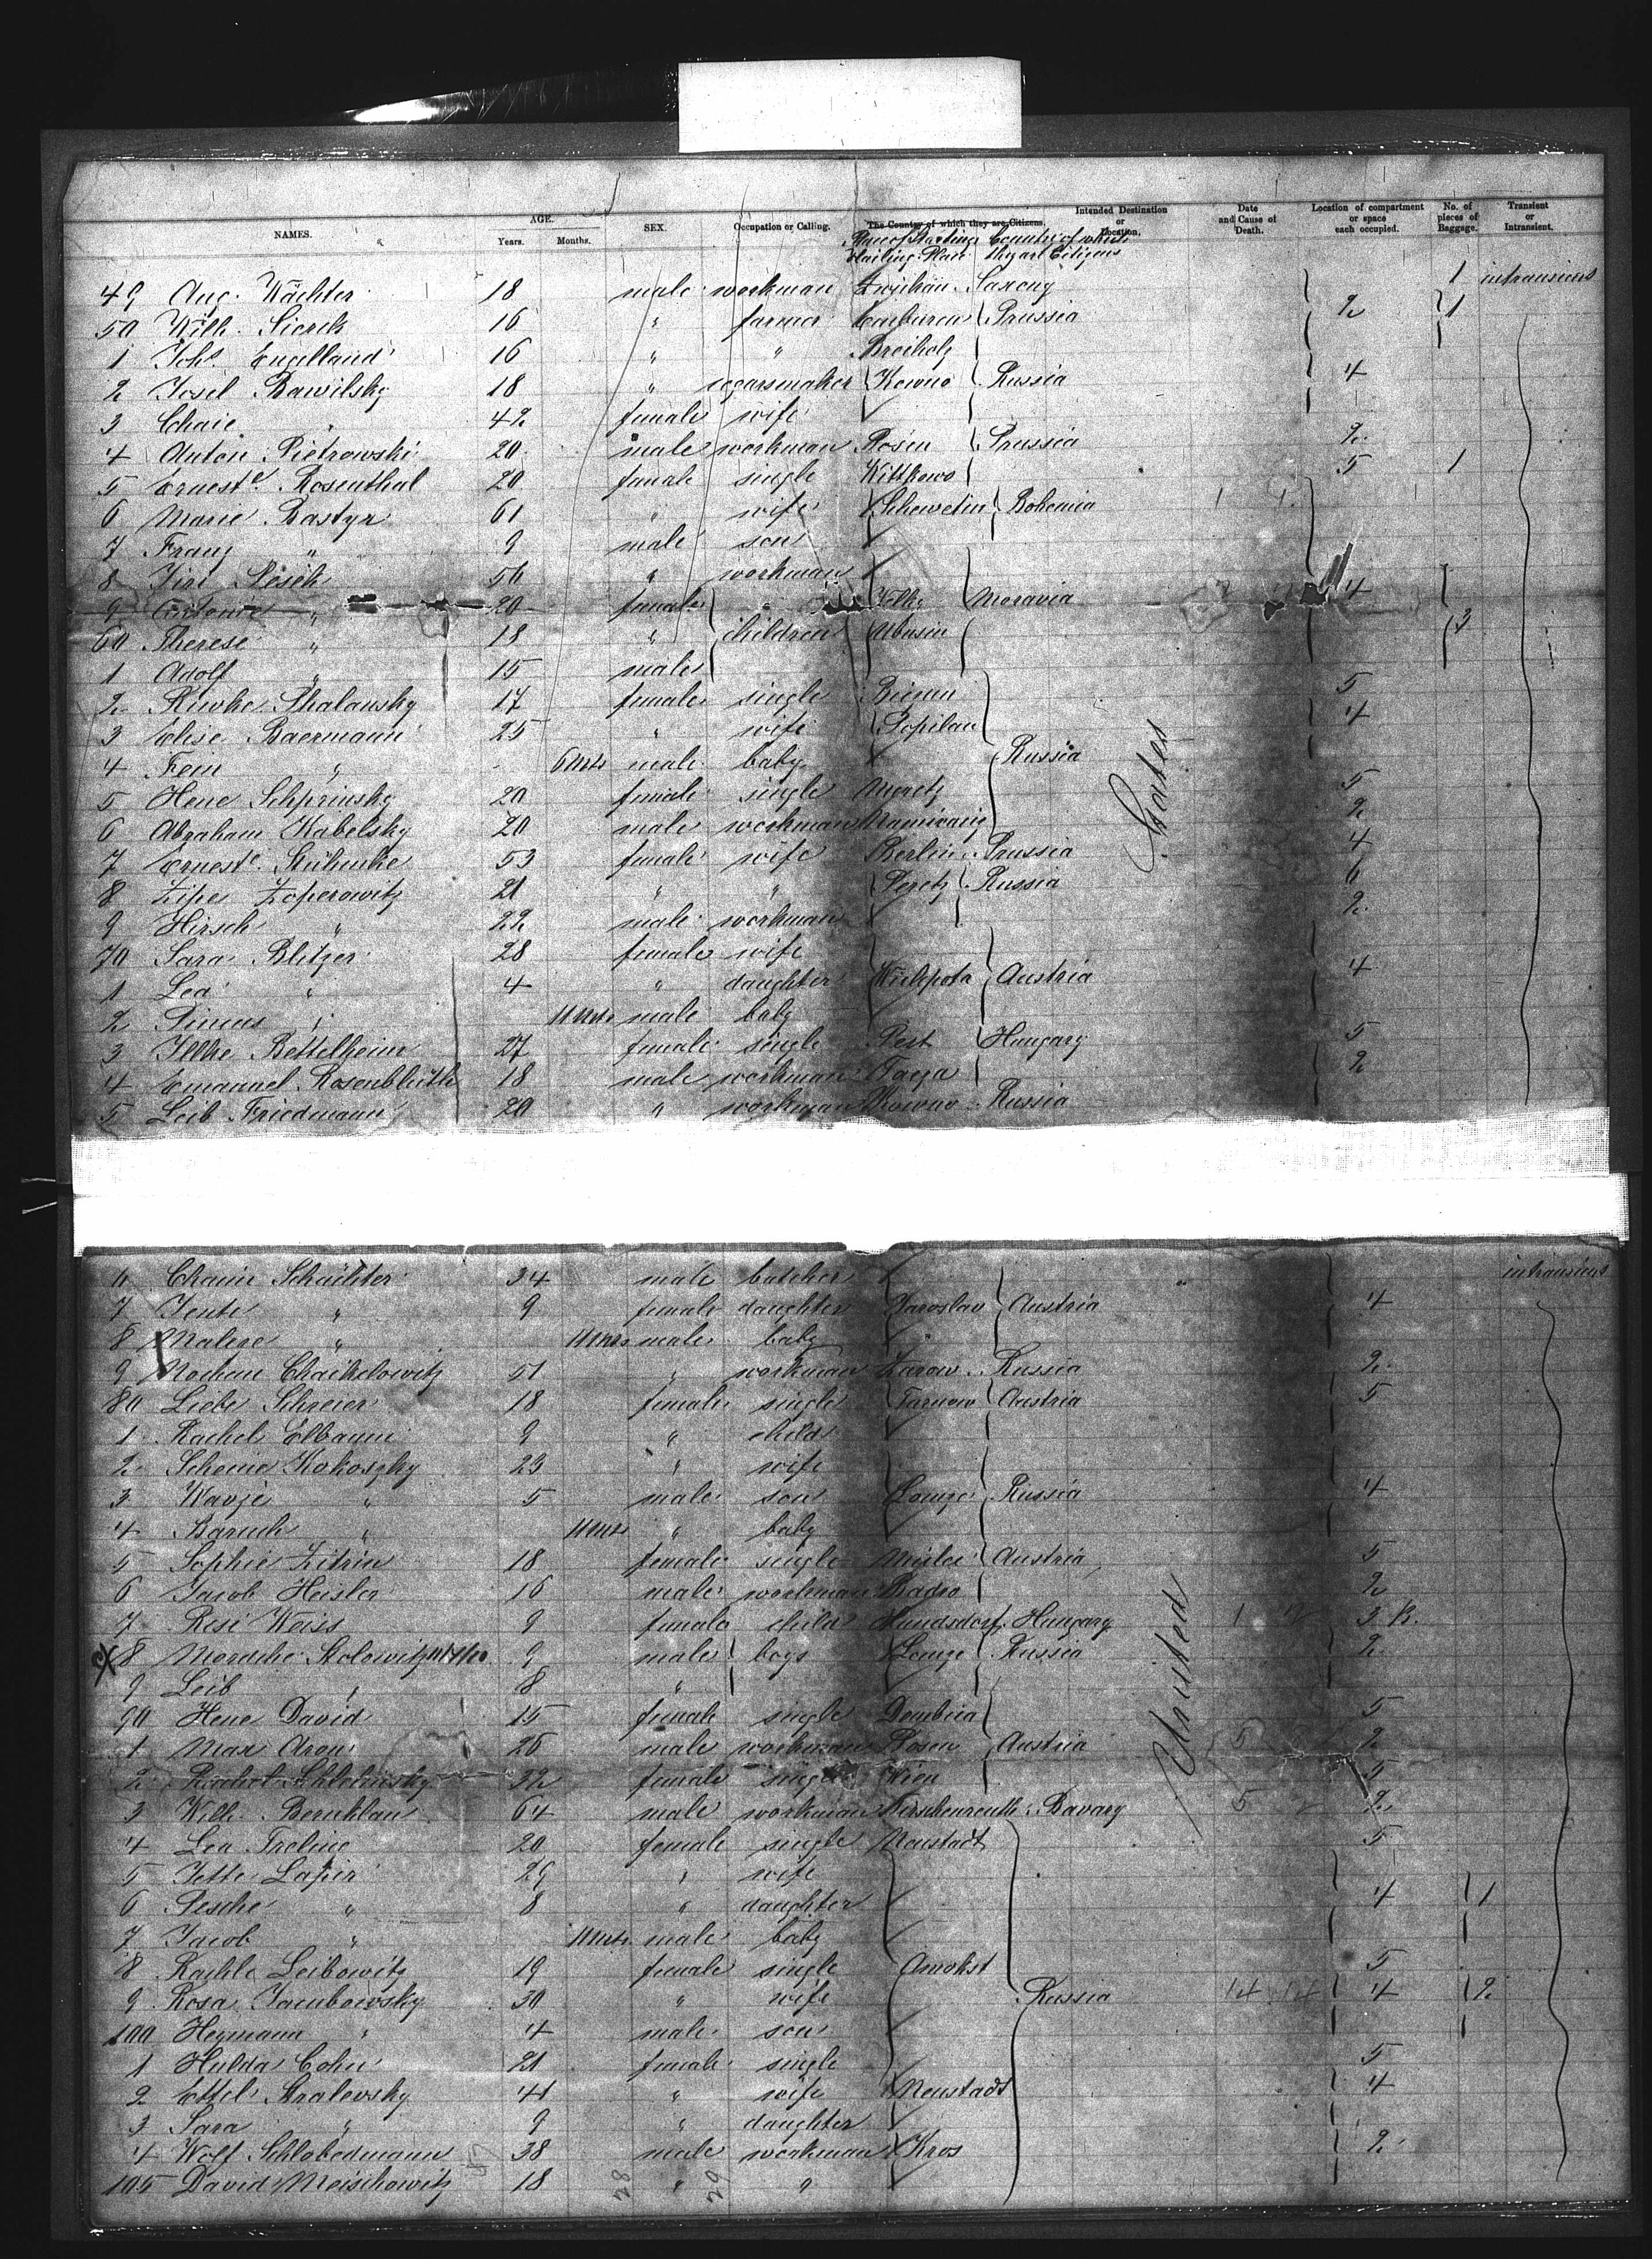 NAMES. AGE. Years. Months. SEX. Occupation or Calling. The Country of which they are Citizens. Intended Destination or Location. Date and Cause of Death. Location of compartment or space each occupied. No. of pieces of Baggage. Transient or Intransient.
Place of Starting Country of which they are Citizens
49 Aug. Wächter 18 male workman Saxony 1 intransient
50 Wilh. Sierck 16 " farmer Prussia 2 1
1 Johs. Engelland 16 " " Breiholz
2 Josel Bawilsky 18 " cigarsmaker Kowno Russia 4
3 Chaie " 42 female wife
4 Anton Pietrowski 20 male workman Posen Prussia 2
5 Ernest. Rosenthal 20 female single Wittkowo 5 1
6 Marie Bastyr 61 " wife Bohemia
7 Franz " 9 male son
8 56 " workman 4
9 Antonie " 20 female " Moravia
60 Therese " 18 " children 3
1 Adolf " 15 male
2 Riwke Shalansky 17 female single 5
3 Elise Baermann 25 " wife Popilan 4
4 Fein " 6 Mts male baby Russia
5 Hene Schprinsky 20 female single 5
6 Abraham Kabelsky 20 male workman 2
7 Ernest. 53 female wife Berlin Prussia 4
8 Zipe Zoperowitz 21 " " Russia 6
9 Hirsch " 22 male workman 2
70 Sara Blitzer 28 female wife
1 Lea " 4 " daughter Austria 4
2 Pincus " 11 Mts male baby
3 Bettelheim 27 female single Pest Hungary 5
4 Emanuel Rosenblüth 18 male workman 2
5 Leib Friedmann 20 " workman Russia
States
6 Chaim Schächter 34 male butcher intransient
7 Jente " 9 female daughter Jaroslav Austria 4
8 " 11 Mts male baby
9 Nochem Chaikelowitz 51 " workman Russia 2
80 Liebe Schreier 18 female single Tarnow Austria 5
1 Rachel Elbaum 9 " child
2 Scheine Kokoszky 23 " wife
3 " 5 male son Russia 4
4 Baruch " 11 Mts " baby
5 Sophie Zitrin 18 female single Mielec Austria 5
6 Jacob Heisler 16 male workman 2
7 Resi Weiss 9 female child Hundsdorf Hungary 1 3 B.
8 Mordche 9 male boys Russia 2
9 Leib " 8 "
90 Hene David 15 female single Dembica 5
1 Max Aron 25 male workman Posen Austria 5 2
2 32 female single Wien 5
3 Wilh. Bernklau 64 male workman Bavary 5 2
4 Lea 20 female single Neustadt 5
5 Jette Lapir 29 " wife
6 Pesche " 8 " daughter 4 1
7 Jacob " 11 Mts male baby
8 Rachle Leibowitz 19 female single 5
9 Rosa Jambowsky 30 " wife Russia 14 14 4 2
100 Heymann " 4 male son
1 Hulda Cohn 21 female single 5
2 Ettel 41 " wife Neustadt 4
3 Sara " 9 " daughter
4 Wolf Schlobodmann 38 male workman Kros 2
105 David Meischowitz 18 " "
United